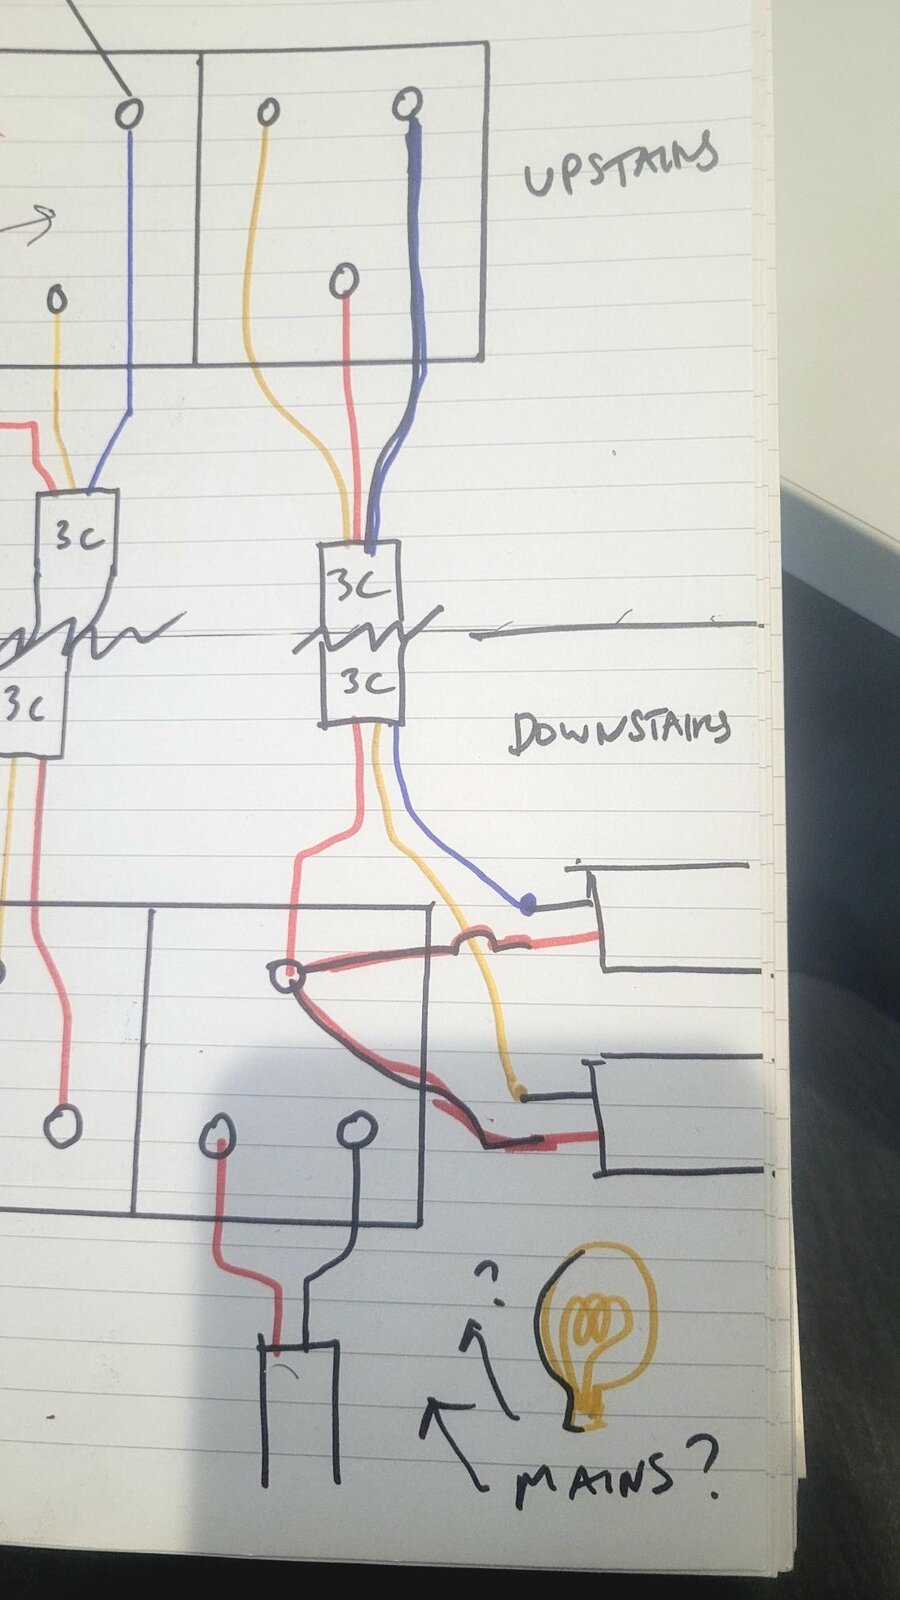 UPSTAIRS
3C
3C
3C
3C
DOWNSTAIRS
?
MAINS?